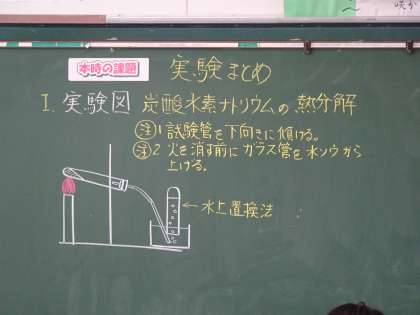 本時の課題 実験まとめ
I. 実験図 炭酸水素ナトリウムの熱分解
注1 試験管を下向きに傾ける。
注2 火を消す前にガラス管を水ソウから
上げる.
←水上置換法